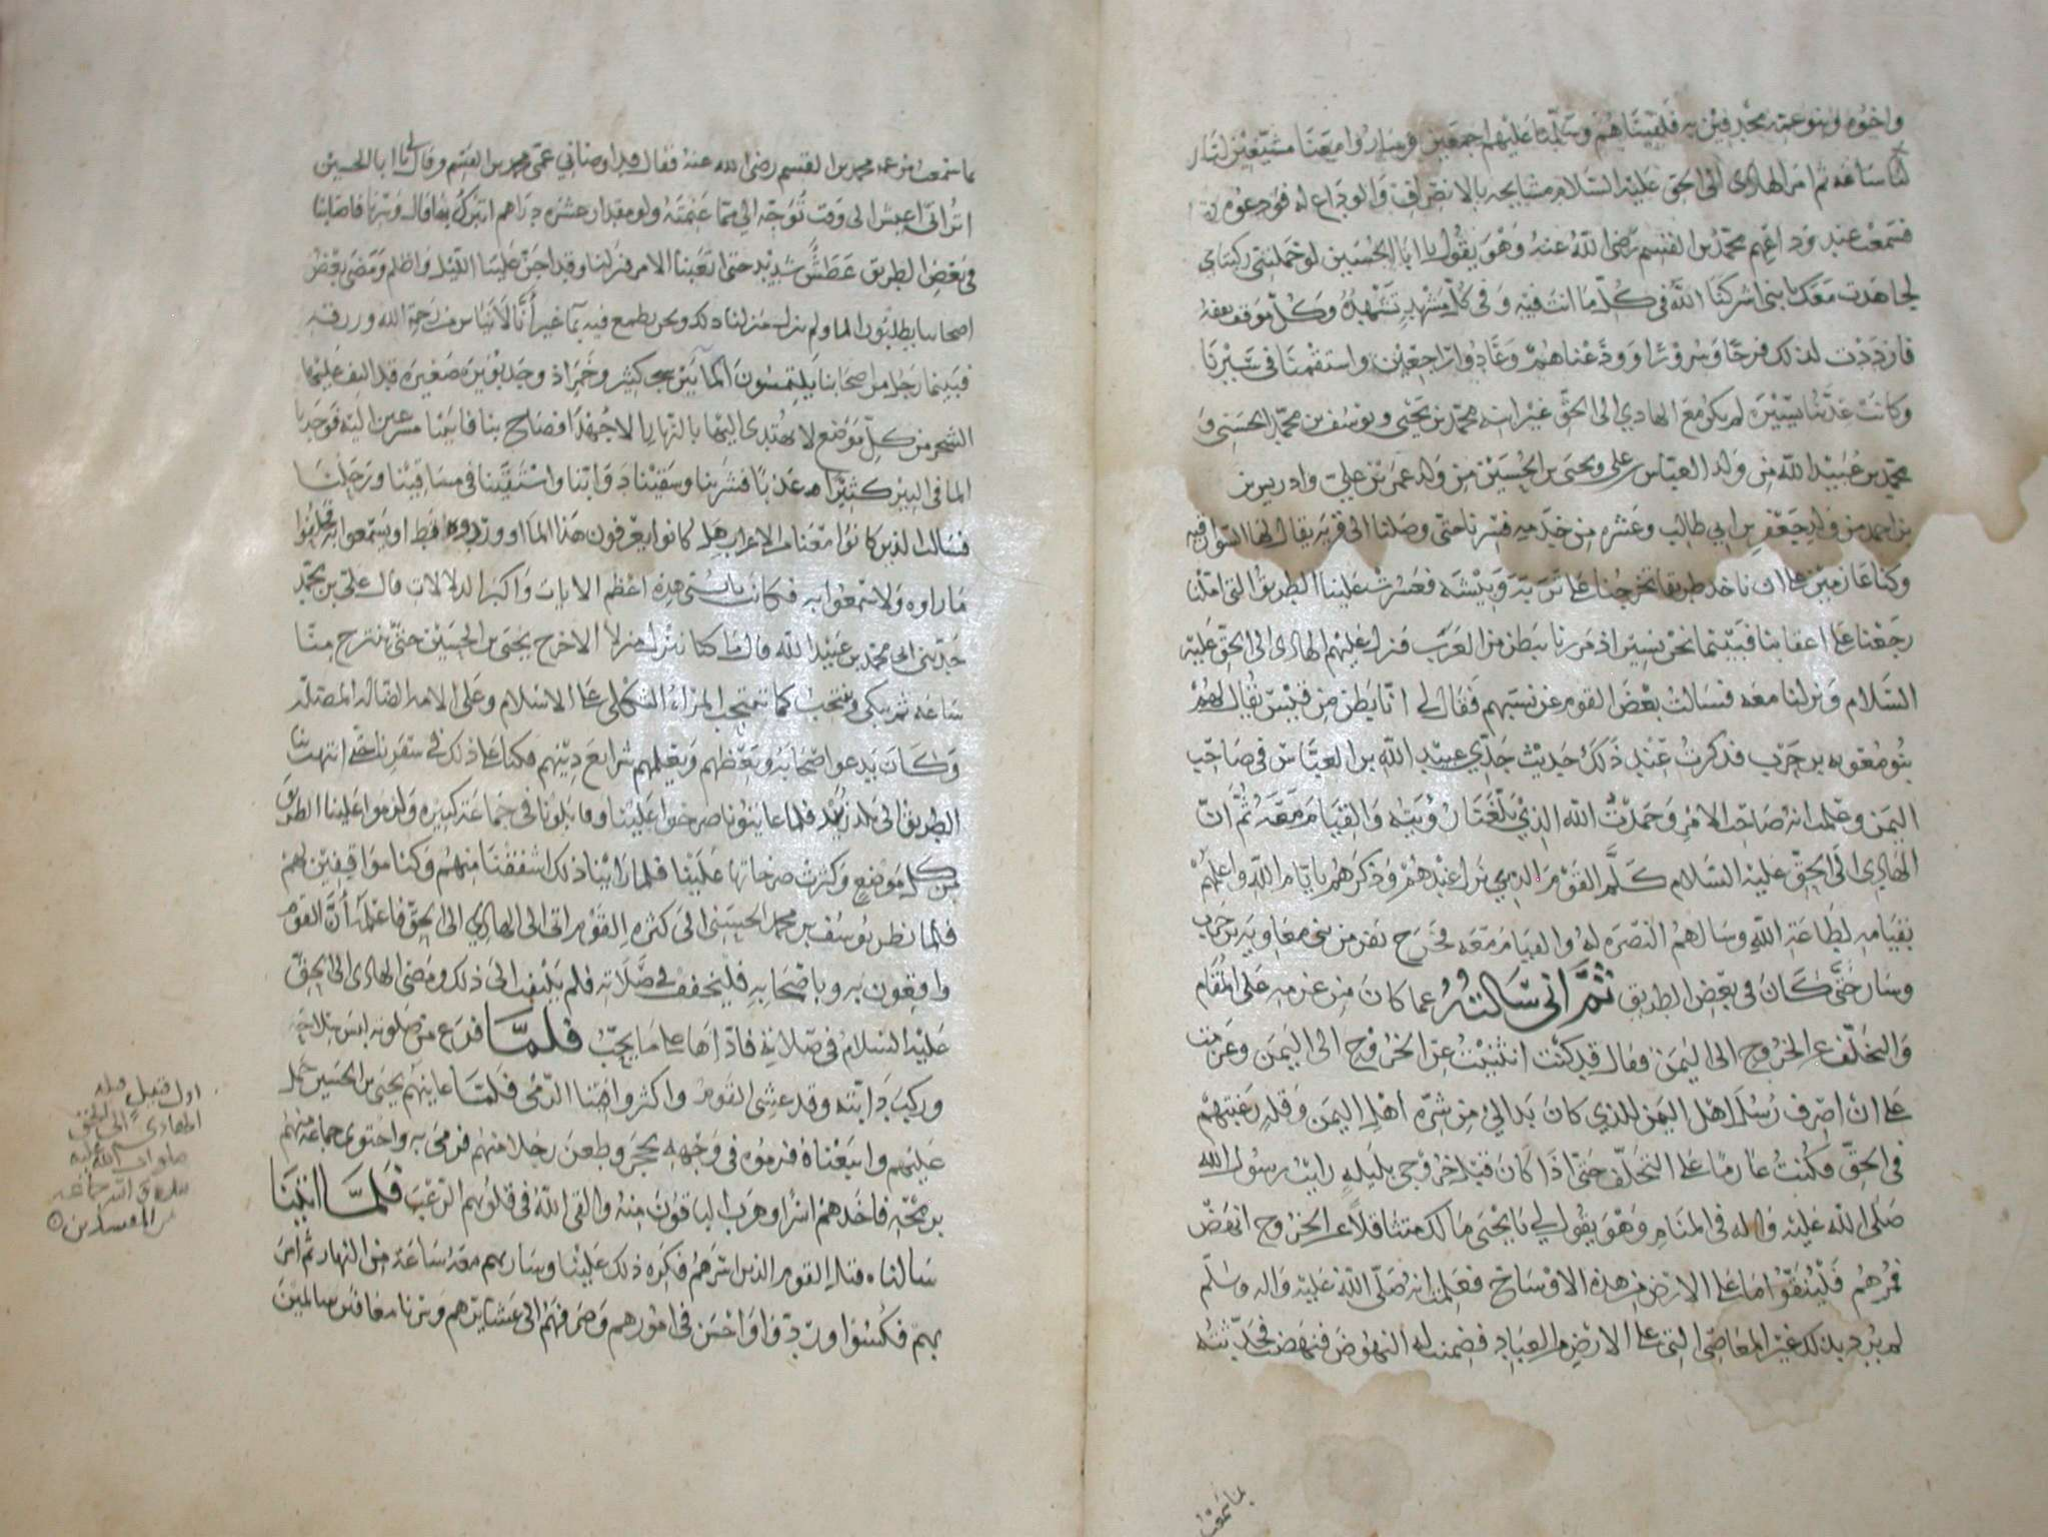 واخوه وبنو عمه محدقين به فلقيناهم وسلمنا عليهم اجمعين وساروا معنا مشيعين لنا
ساعة ثم امر الهادي الى الحق عليه السلام مشايخه بالانصراف والوداع له فودعوه
فسمعت عند وداعهم محمد بن القسم رضي الله عنه وهو يقول يا ابا الحسين لو حملتني ركبتاي
لجاهدت معك يا بني اشركنا الله في كل ما انت فيه وفي كل مشهد تشهده وكل موقف تقفه
فازددت لذلك فرحا وسرورا وودعناهم وعادوا راجعين واستقمنا في سيرنا
وكانت عدتنا يسيره لم يكن مع الهادي الى الحق غير ابنه محمد بن يحيى ويوسف بن محمد الحسني و
محمد بن عبيد الله من ولد العباس بن علي ويحيى بن الحسين من ولد عمر بن علي وادريس
بن احمد من ولد جعفر بن ابي طالب وعشره من خدمه فسرنا حتى وصلنا الى قريه يقال لها السوارقيه
وكنا عازمين على ان ناخذ طريقا تخرجنا على تربه وبيشه فعسرت علينا الطريق التي املنا
رجعنا على اعقابنا فبينما نحن نسير اذ مررنا ببطن من العرب فنزل عليهم الهادي الى الحق عليه
السلام ونزلنا معه فسالت بعض القوم عن نسبهم فقال لي انا بطن من قيس يقال لهم
بنو معوية بن حرب فذكرت عند ذلك حديث جدي عبيد الله بن العباس في صاحب
اليمن وعلمت انه صاحب الامر وحمدت الله الذي بلغنا رؤيته والقيام معه ثم ان
الهادي الى الحق عليه السلام كلم القوم الذي نزل عندهم وذكرهم بايام الله واعلمهم
بقيامه لطاعة الله وسالهم النصره له والقيام معه فخرج نفر من بني معاوية بن حرب
وسار حتى كان في بعض الطريق ثم اني سالته عما كان من عزمه على المقام
والتخلف عن الخروج الى اليمن فقال قد كنت انثنيت عن الخروج الى اليمن وعزمت
على ان اصرف رسل اهل اليمن للذي كان بدا لي من شره اهل اليمن وقلة رغبتهم
في الحق فكنت عازما على التخلف حتى اذا كان قبل خروجي بليله رايت رسول الله
صلى الله عليه واله في المنام وهو يقول لي يا يحيى مالك متثاقلا عن الخروج انهض
فمرهم فلينقوا ما على الارض من هذه الاوساخ فعلمت انه صلى الله عليه واله وسلم
لم يرد بذلك غير المعاصي التي على الارض من العباد فضمنت له النهوض فنهضت فحدثته
بما سمعت
بما سمعت من عمه محمد بن القسم رضي الله عنه فقال قد اوصاني عمي محمد بن القسم وقال يا ابا الحسين
اتراني اعيش الى وقت توجه الي مما غنمته ولو مقدار عشره دراهم اتبرك بها قال وسرنا فاصابنا
في بعض الطريق عطش شديد حتى اتعبنا الامر فنزلنا وقد اجن علينا الليل واظلم ومضى بعض
اصحابنا يطلبون الما ولم ينزل منزلنا ذلك ونحن نطمع فيه بما غير انا لا نياس من رحمة الله ورزقه
فبينما رجل من اصحابنا يلتمسون الما بين شجر كثير وخمر اذ وجد بويرة صغيرة قد التف عليها
الشجر من كل موضع لا يهتدى اليها بالنهار الا جهدا فصاح بنا فاتينا مسرعين اليه فوجدنا
الما في البير كثيرا عذبا فشربنا وسقينا دوابنا واستقينا في مساقينا ورحلنا
فسالت الذين كانوا معنا من الاعراب هل كانوا يعرفون هذا الما او وردوه قط او يستمعوا به فحلفوا
ما راوه ولا سمعوا به فكانت هذه اعظم الايات واكبر الدلالات قال علي بن محمد
حدثني ابي محمد بن عبيد الله قال ما كنا ننزل منزلا الا خرج يحيى بن الحسين حتى ينتزح منا
ساعه ثم يبكي وينتحب كما تنتحب المراه الثكلى على الاسلام وعلى الامه الضاله المضله
وكان يدعو اصحابه ويعظهم ويعلمهم شرايع دينهم فكنا على ذلك في سفرنا حتى انتهت بنا
الطريق الى بلد فلما عاينونا صرخوا علينا وقابلونا في جماعة كبيرة ولزموا علينا الطريق
من كل موضع وكثرت صرخاتها علينا فلما راينا ذلك اشفقنا منهم وكنا مواقفين لهم
فلما نظر يوسف بن محمد الحسني الى كثرة القوم اتى الى الهادي الى الحق فاعلمه ان القوم
واقعون به وباصحابه فليخفف في صلاته فلم يلتفت الى ذلك ومضى الهادي الى الحق
عليه السلام في صلاته فاداها على ما يجب فلما فرغ من صلوته لبس سلاحه
وركب دابته وقد غشى القوم واكثروا فينا الرمي فلما عاينهم يحيى بن الحسين حمل
عليهم واتبعناه فرموه في وجهه بحجر وطعن رجلا منهم فرمى به واحتوى جماعة منهم
برمحه فاخذهم اسرا وهرب الباقون منه والقى الله في قلوبهم الرعب فلما اتينا
سالناه قتل القوم الذين اسرهم فكره ذلك علينا وسار بهم معه ساعة من النهار ثم امر
بهم فكسوا وزودوا واحسن في امورهم وصرفهم الى عشايرهم وسرنا معافين سالمين
اول قتيل قتله
الهادي الى الحق
صلوات الله عليه
من المفسدين